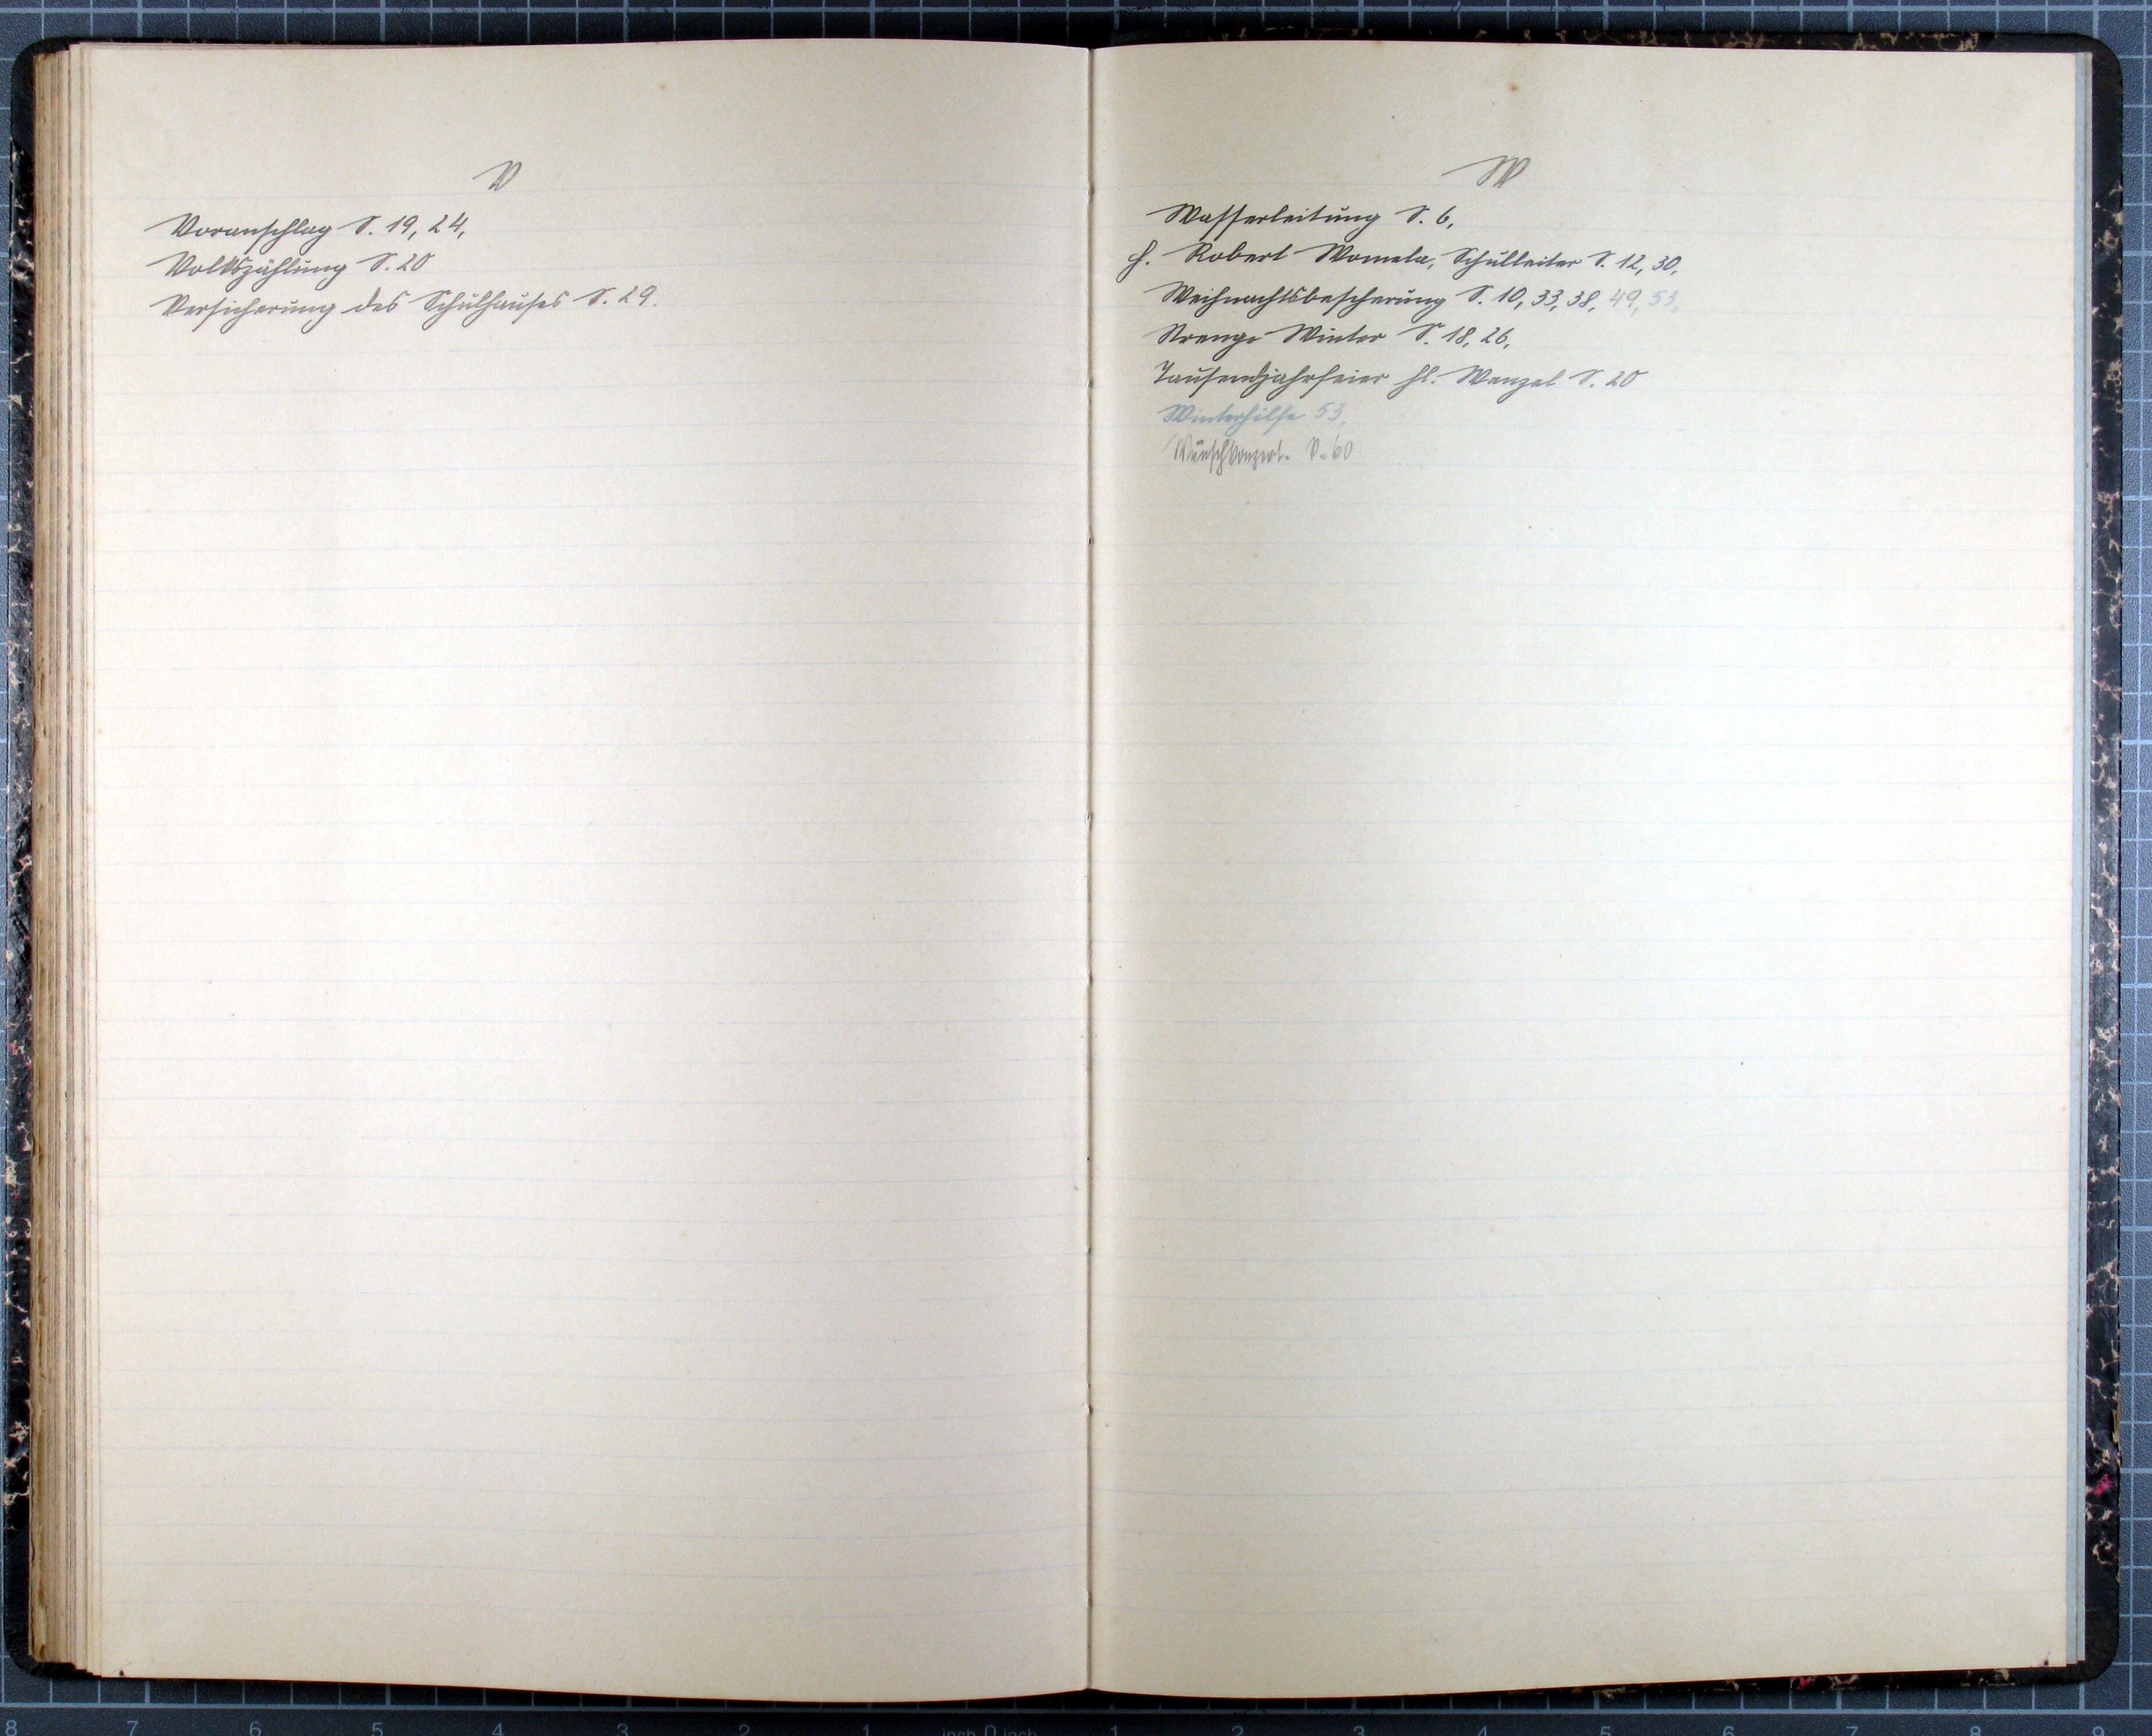 V
Voranschlag S. 19, 24,
Volkszählung S. 20
Versicherung des Schulhauses S. 29.
W
Wasserleitung S. 6,
H. Robert Womela, Schulleiter S. 12, 30,
Weihnachtsbescherung S. 10, 33, 38, 49, 53,
Strenge Winter S. 18, 26,
Tausendjahrfeier hl. Wenzel S. 20
Winterhilfe 53,
Wunschkonzert. S. 60
8 7 6 5 4 3 2 1 inch 0 inch 1 2 3 4 5 6 7 8 9